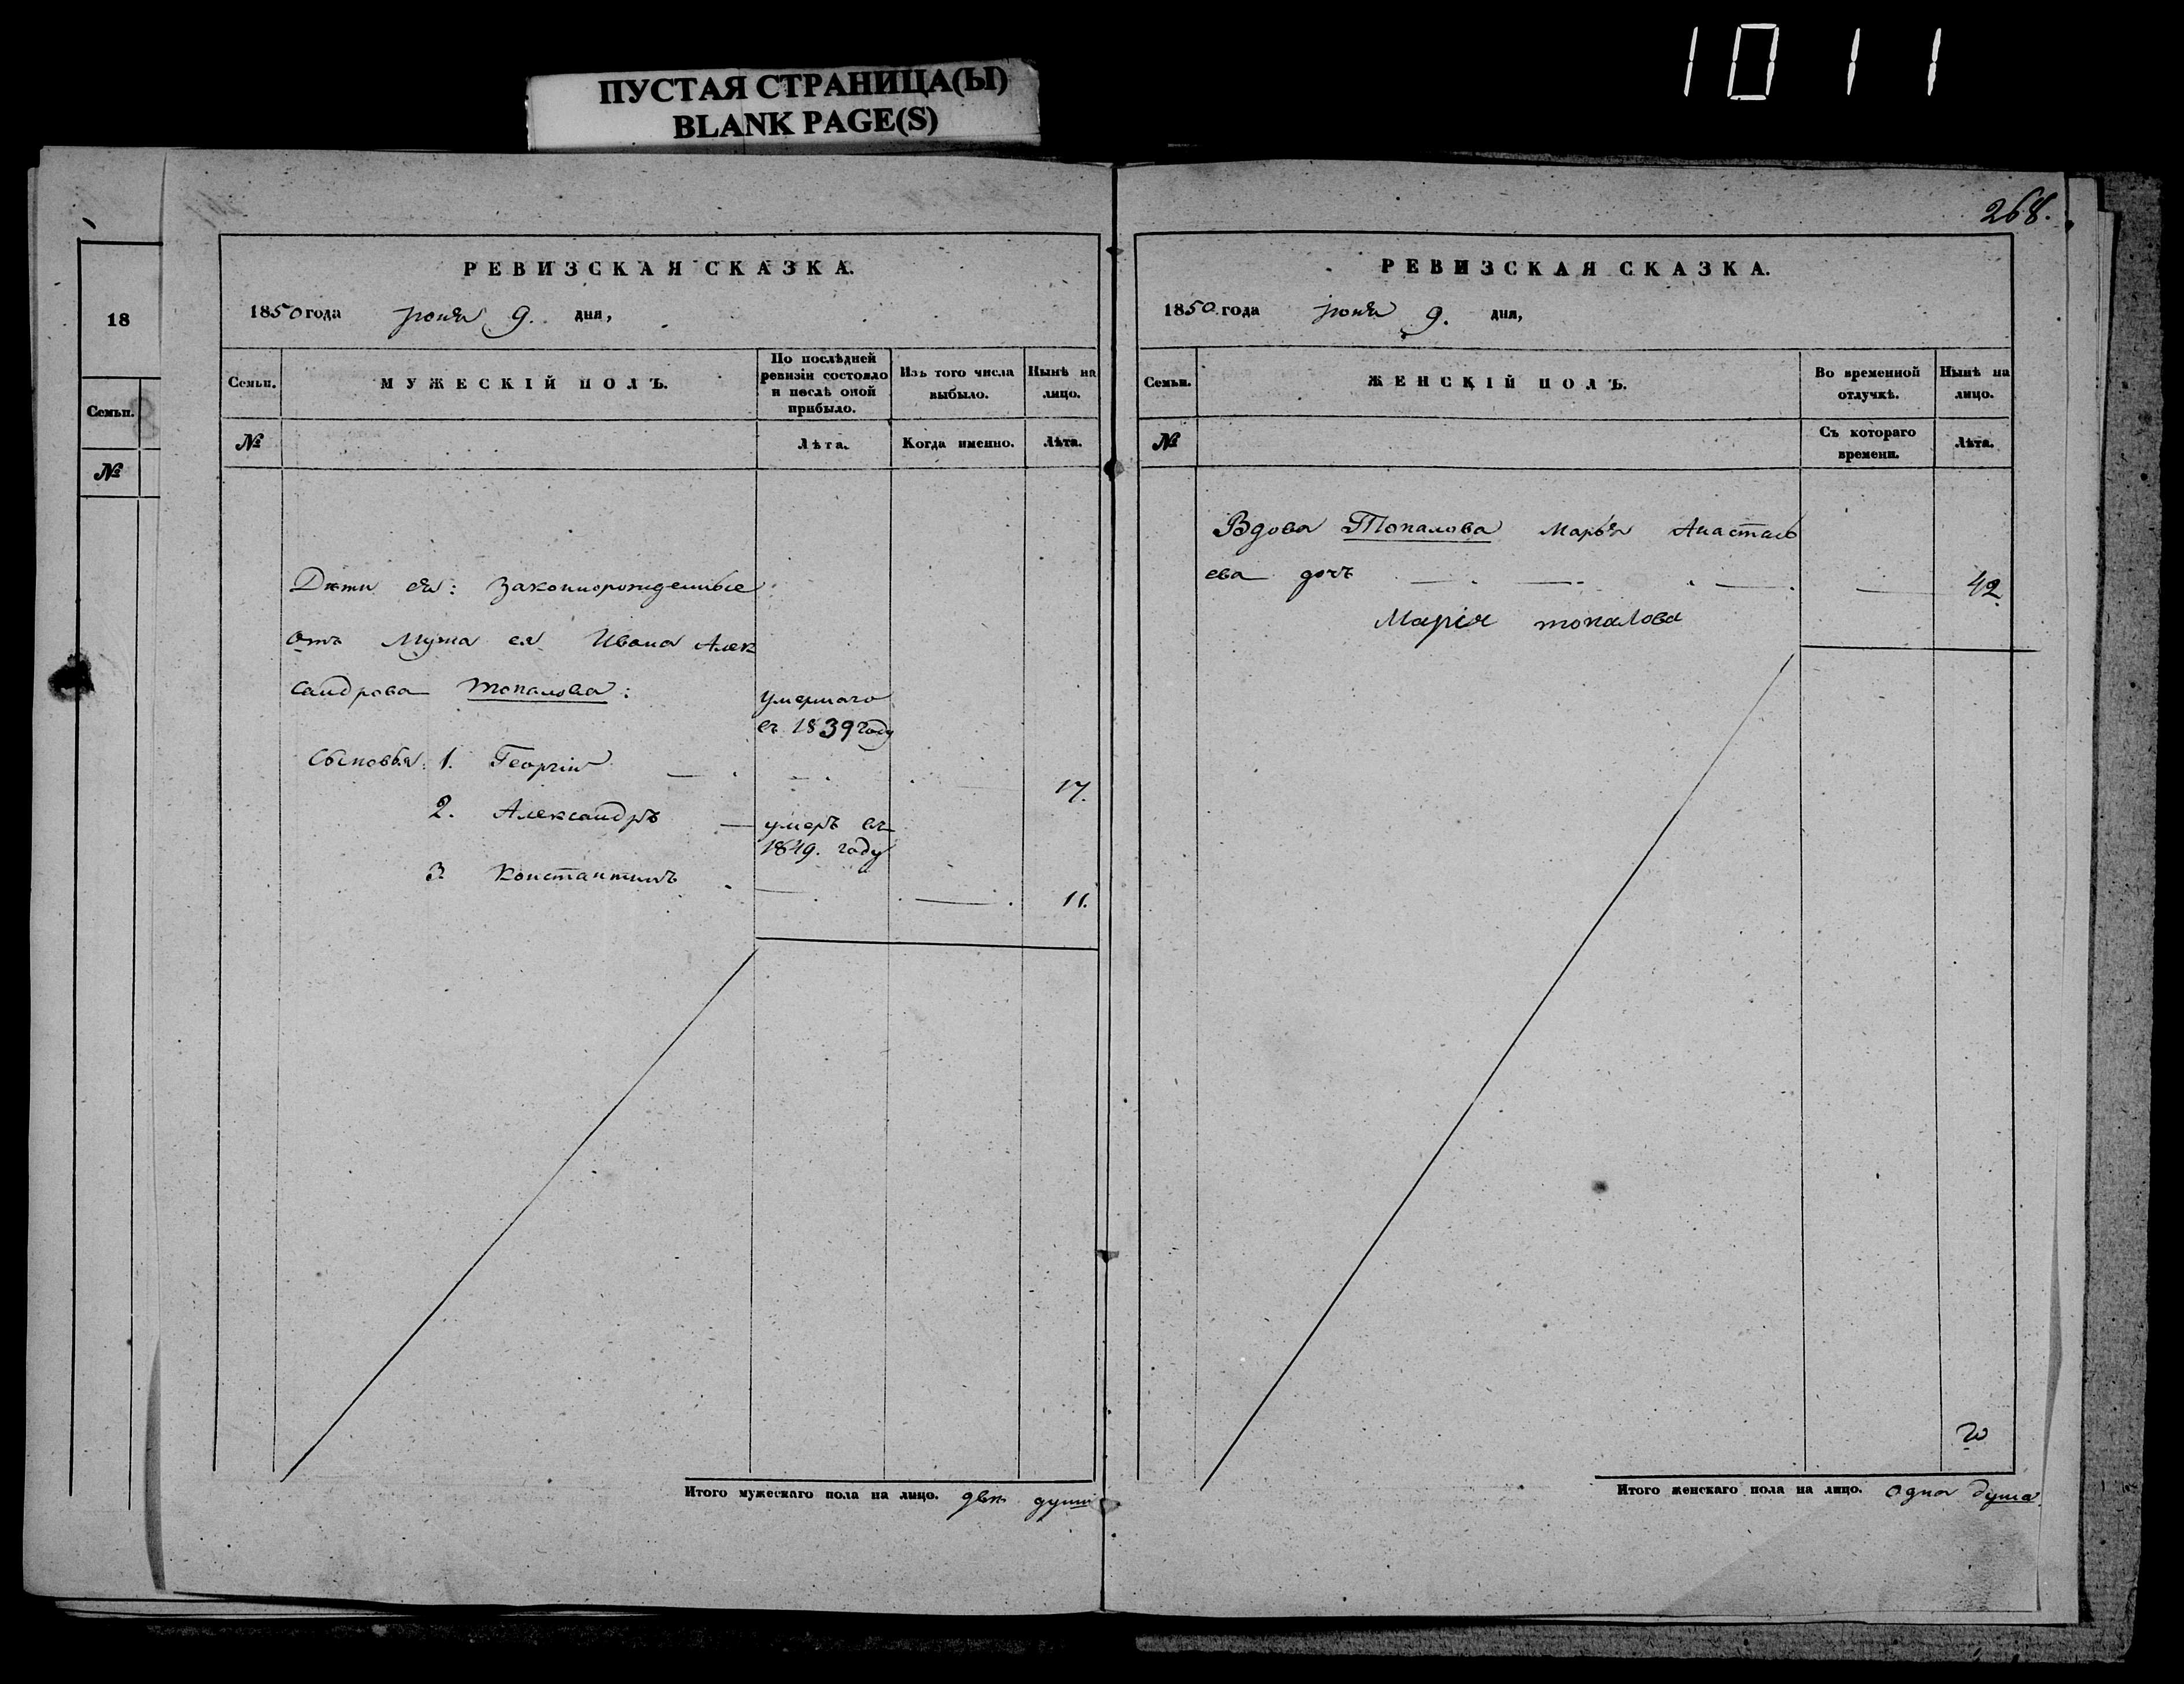 1011
ПУСТАЯ СТРАНИЦА(Ы)
BLANK PAGE(S)
18
Семьи.
№
РЕВИЗСКАЯ СКАЗКА.
1850 года Іюня 9. дня,
Семьи.
МУЖЕСКІЙ ПОЛЪ.
По послѣдней ревизіи состояло и послѣ оной прибыло.
Изъ того числа выбыло.
Нынѣ на лицо.
№
Лѣта.
Когда именно.
Лѣта.
Дѣти ея: Законнорожденные
отъ Мужа ея Ивана Алек
сандрова Топалова: умершаго
въ 1839 году
Сыновья: 1. Георгій 17.
2. Александръ умеръ въ
1849. году
3. Константинъ 11.
Итого мужескаго пола на лицо. двѣ души
268.
РЕВИЗСКАЯ СКАЗКА.
1850 года Іюня 9. дня,
Семьи.
ЖЕНСКІЙ ПОЛЪ.
Во временной отлучкѣ.
Нынѣ на лицо.
№
Съ котораго времени.
Лѣта.
Вдова Топалова Марья Анастась
ева дочь 42.
Марія топалова
Итого женскаго пола на лицо. Одна душа.